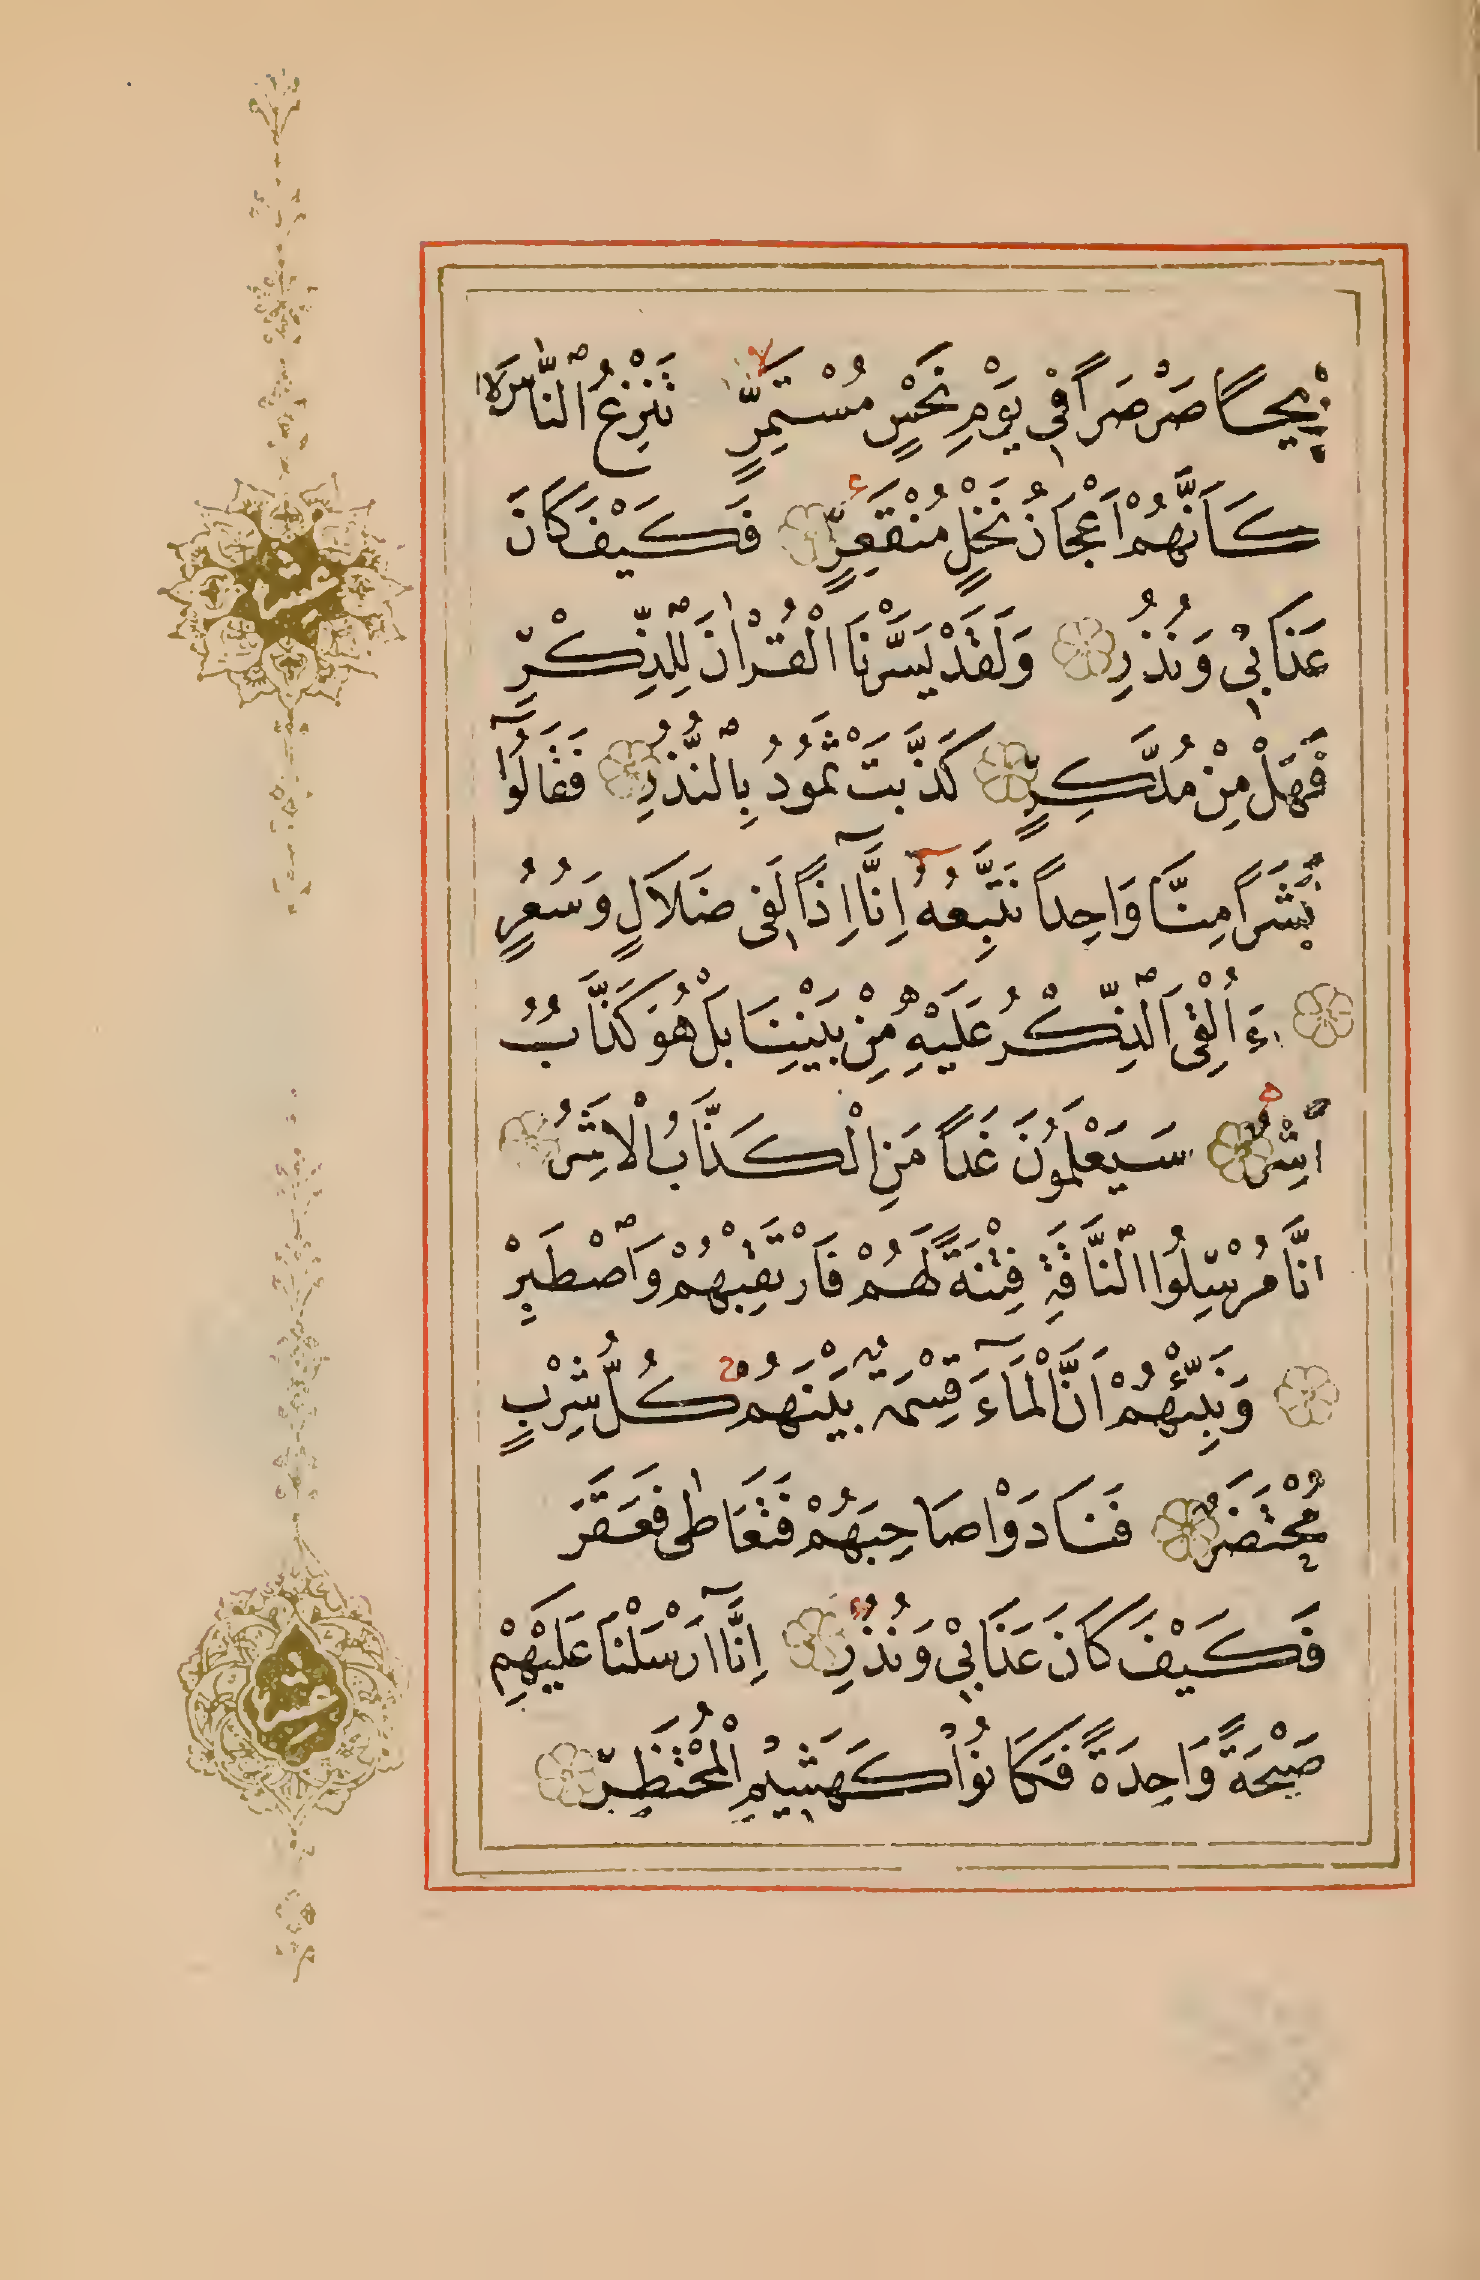 رِيحًا صَرْصَرًا فِي يَوْمِ نَحْسٍ مُسْتَمِرٍّ تَنْزِعُ النَّاسَ
كَاَنَّهُمْ اَعْجَازُ نَخْلٍ مُنْقَعِرٍ فَكَيْفَ كَانَ
عَذَابِي وَنُذُرِ وَلَقَدْ يَسَّرْنَا الْقُرْاٰنَ لِلذِّكْرِ
فَهَلْ مِنْ مُدَّكِرٍ كَذَّبَتْ ثَمُودُ بِالنُّذُرِ فَقَالُوٓا
بَشَرًا مِنَّا وَاحِدًا نَتَّبِعُهُٓ اِنَّٓا اِذًا لَفِى ضَلَالٍ وَسُعُرٍ
ءَاُلْقِىَ الذِّكْرُ عَلَيْهِ مِنْ بَيْنِنَا بَلْ هُوَ كَذَّابٌ
اَشِرٌ سَيَعْلَمُونَ غَدًا مَنِ الْكَذَّابُ الْاَشِرُ
اِنَّا مُرْسِلُوا النَّاقَةِ فِتْنَةً لَهُمْ فَارْتَقِبْهُمْ وَاصْطَبِرْ
وَنَبِّئْهُمْ اَنَّ الْمَٓاءَ قِسْمَةٌ بَيْنَهُمْ كُلُّ شِرْبٍ
مُحْتَضَرٌ فَنَادَوْا صَاحِبَهُمْ فَتَعَاطٰى فَعَقَرَ
فَكَيْفَ كَانَ عَذَابِي وَنُذُرِ اِنَّٓا اَرْسَلْنَا عَلَيْهِمْ
صَيْحَةً وَاحِدَةً فَكَانُوا كَهَشِيمِ الْمُحْتَظِرِ